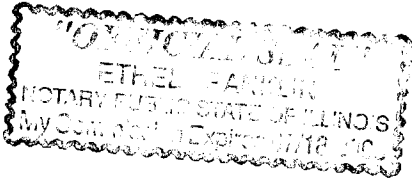 "OFFICIAL SEAL"
ETHEL
NOTARY PUBLIC STATE OF ILLINOIS
My Commission Expires